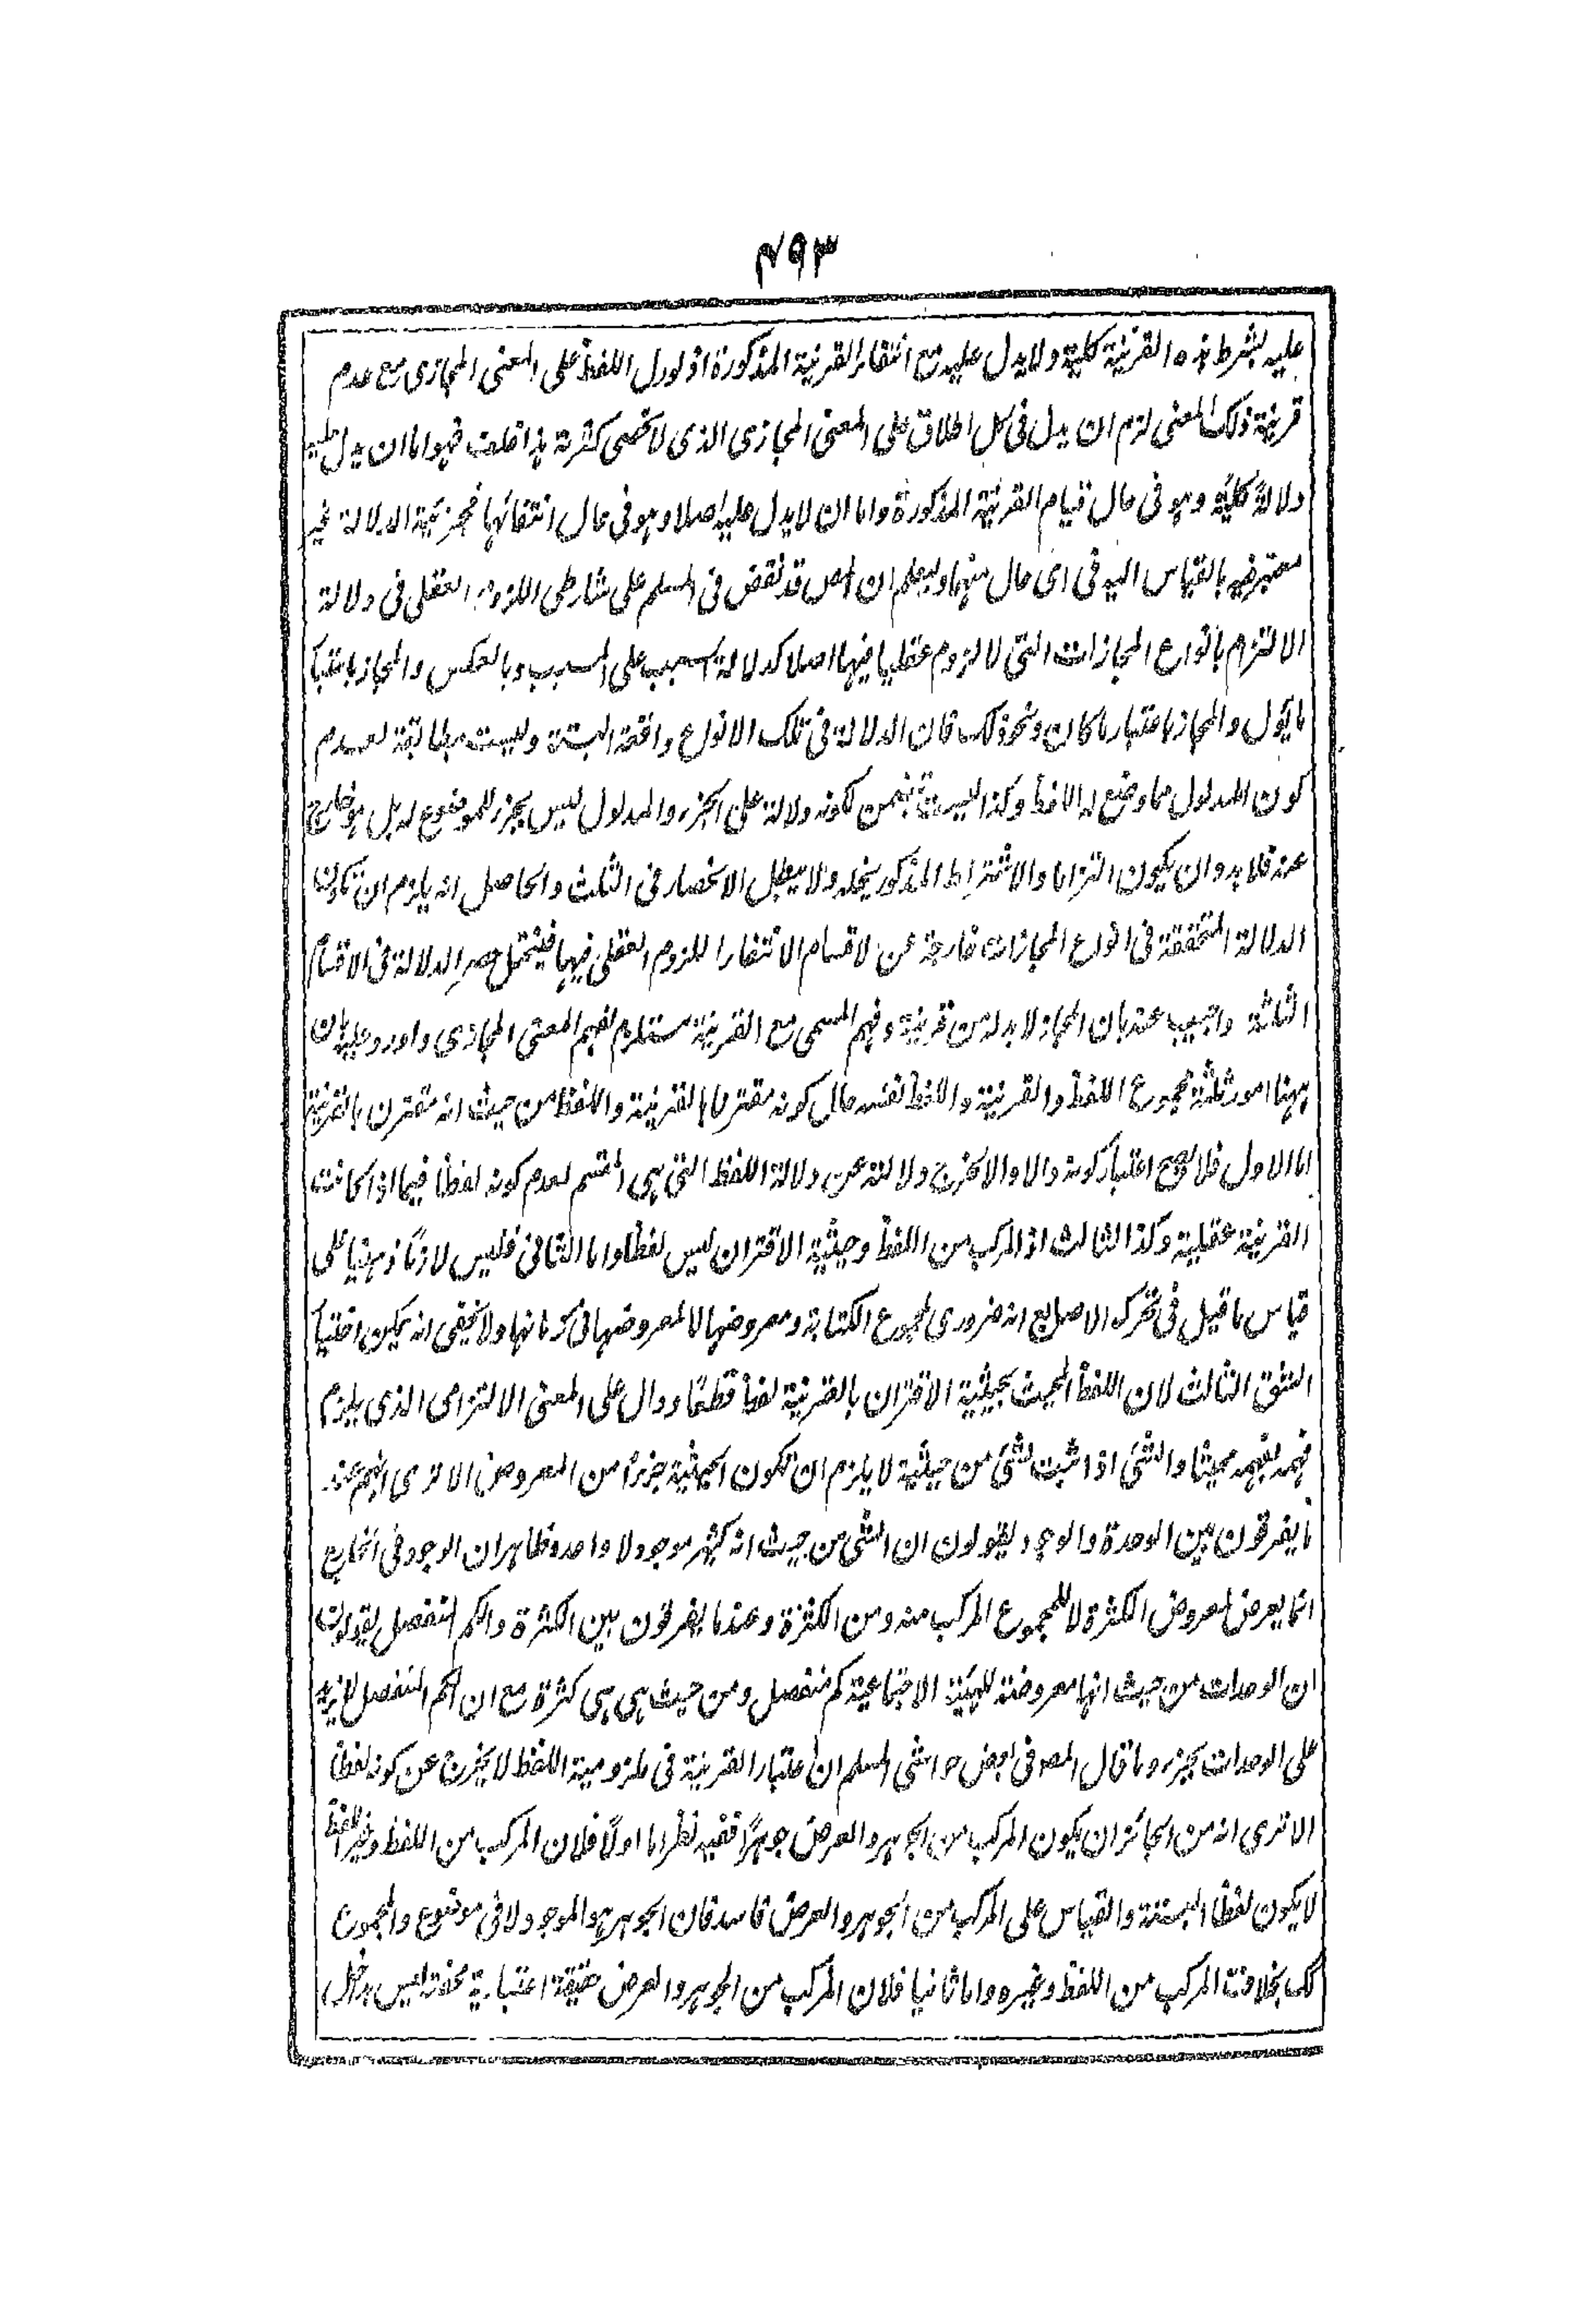 ٤٩٣
عليه بشرط هذه القرينة كلية ولا يدل عليه مع انتفاء القرينة المذكورة اذ لو دل اللفظ على المعنى المجازى مع عدم
قرينة ذلك المعنى لزم ان يدل فى كل اطلاق على المعنى المجازى الذى لا تحصى كثرته هذا خلف فهو اما ان يدل عليه
دلالة كلية وهو فى حال قيام القرينة المذكورة واما ان لا يدل عليه اصلا وهو فى حال انتفائها فجزئية الدلالة غير
معتبرة بالقياس اليه فى اى حال منهما وليعلم ان المص قد نقض فى المسلم على شارطى اللزوم العقلى فى دلالة
الالتزام بانواع المجازات التى لا لزوم عقليا فيها اصلا كدلالة السبب على المسبب وبالعكس والمجاز باعتبار
ما يؤل والمجاز باعتبار ما كان ونحو ذلك فان الدلالة فى تلك الانواع واقعة البتة وليست مطابقة لعدم
كون المدلول مما وضع له اللفظ وكذا ليست تضمن لكونه دلالة على الجزء والمدلول ليس بجزء للموضوع له بل هو خارج
عنه فلا بد وان يكون التزاما والاشتراط المذكور يخله ولا يبطل الانحصار فى الثلث والحاصل انه يلزم ان تكون
الدلالة المتحققة فى انواع المجازات خارجة عن الاقسام لانتفاء اللزوم العقلى فيها فيختل حصر الدلالة فى الاقسام
الثلثة واجيب عنه بان المجاز لا بد له من قرينة وفهم المسمى مع القرينة مستلزم لفهم المعنى المجازى واورد عليه بان
ههنا امور ثلثة مجموع اللفظ والقرينة واللفظ نفسه حال كونه مقترنا بالقرينة واللفظ من حيث انه مقترن بالقرينة
اما الاول فلا يصح اعتبار كونه دالا والا لخرج دلالته عن دلالة اللفظ التى هى المقسم لعدم كونه لفظا فيما اذا كانت
القرينة عقلية وكذا الثالث اذ المركب من اللفظ وحيثية الاقتران ليس لفظا واما الثانى فليس لازما ذهنيا على
قياس ما قيل فى تحرك الاصابع انه ضرورى لمجموع الكتابة ومعروضها لا لمعروضها فى زمانها ولا يخفى انه يمكن اختيار
الشق الثالث لان اللفظ المحيث بحيثية الاقتران بالقرينة لفظ قطعا ودال على المعنى الالتزامى الذى يلزم
فهمه لفهمه محيثا والشئ اذا ثبت لشئ من حيثية لا يلزم ان تكون الحيثية جزءا من المعروض الا ترى انهم عند
ما يفرقون بين الوحدة والوجود يقولون ان الشئ من حيث انه كثير موجود لا واحد وظاهر ان الوجود فى الخارج
انما يعرض لمعروض الكثرة لا للمجموع المركب منه ومن الكثرة وعندما يفرقون بين الكثرة والكم المنفصل يقولون
ان الوحدات من حيث انها معروضة للهيئة الاجتماعية كم منفصل ومن حيث هى هى كثرة مع ان الكم المنفصل لا يزيد
على الوحدات بجزء وما قال المص فى بعض حواشى المسلم ان اعتبار القرينة فى ملزومية اللفظ لا يخرج عن كونه لفظا
الا ترى انه من الجائز ان يكون المركب من الجوهر والعرض جوهرا ففيه نظر اما اولا فلان المركب من اللفظ وغير اللفظ
لا يكون لفظا البتة والقياس على المركب من الجوهر والعرض فاسد فان الجوهر هو الموجود لا فى موضوع والمجموع
كك بخلاف المركب من اللفظ وغيره واما ثانيا فلان المركب من الجوهر والعرض حقيقة اعتبارية محضة ليس بداخل